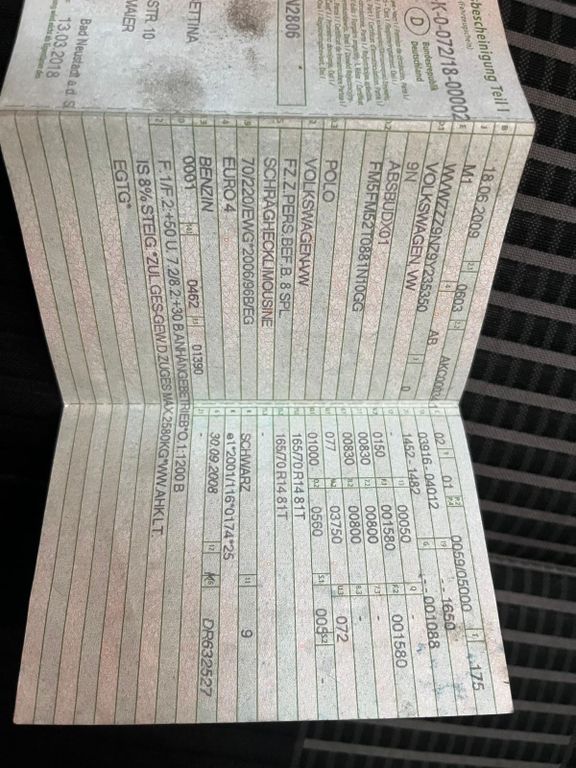 bescheinigung Teil I
K-0-072/18-00002
D
Bundesrepublik
Deutschland
N2806
ETTINA
STR. 10
Bad Neustadt a.d. S
13.03.2018
18.06.2009 0603
M1 AR
WVWZZZ9NZ9Y235350
VOLKSWAGEN, VW
9N
ABSBUDX01
FM5FM52T0881N10GG
POLO
VOLKSWAGEN-VW
FZ.Z.PERS.BEF.B. 8 SPL.
SCHRAGHECKLIMOUSINE
70/220/EWG*2006/96B/EG
EURO 4
BENZIN
0001 0462 01390
F.1/F.2:+50 U. 7.2/8.2:+30 B.ANHÄNGEBETRIEB*O.1:1200 B
IS 8% STEIG.*ZUL.GES-GEW.D.ZUGES MAX.2580KG*WW.AHK LT.
EGTG*
02 01 0059/05000 175
03916-04012 1650
1452-1482 001088
00050
0150 001580 001580
00830 00800
00830 00800
077 03750 072
01000 0560 005 -
165/70 R14 81T
165/70 R14 81T
-
SCHWARZ 9
e1*2001/116*0174*25
30.09.2008 DR632527
-